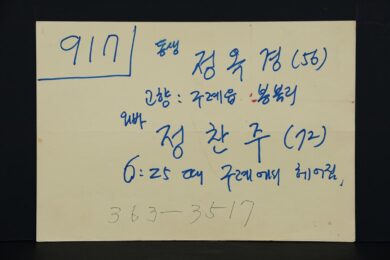 917
동생 정옥경 (56)
고향 : 구례읍 봉북리
오빠 정찬주 (72)
6:25 때 구례에서 헤어짐.
363-3517